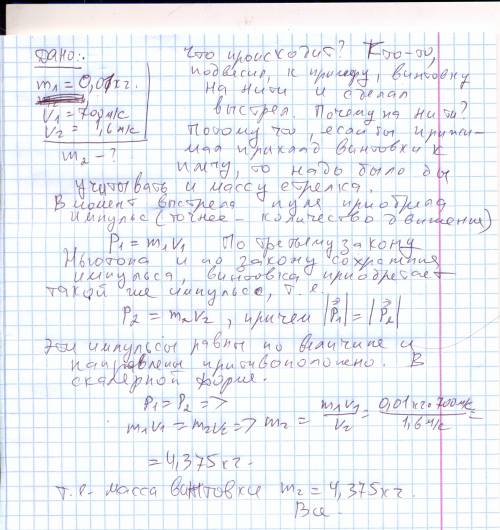 Дано:
m₁ = 0,01 кг.
V₁ = 700 м/с
V₂ = 1,6 м/с
m₂ - ?
Что происходит? Кто-то,
подвесил, к примеру, винтовку
на нити и сделал
выстрел. Почему на нити?
Потому что, если бы прижи-
мал приклад винтовки к
плечу, то надо было бы
учитывать и массу стрелка.
В момент выстрела пуля приобрела
импульс (точнее - количество движения)
P₁ = m₁V₁ По третьему закону
Ньютона и по закону сохранения
импульса, винтовка приобретает
такой же импульс, т.е.
P₂ = m₂V₂, причем |P⃗₁| = |P⃗₂|
Эти импульсы равны по величине и
направлены противоположно. В
скалярной форме.
P₁ = P₂ =>
m₁V₁ = m₂V₂ => m₂ = m₁V₁/V₂ = 0,01 кг·700 м/с / 1,6 м/с =
= 4,375 кг.
т.е. масса винтовки m₂ = 4,375 кг.
Все.